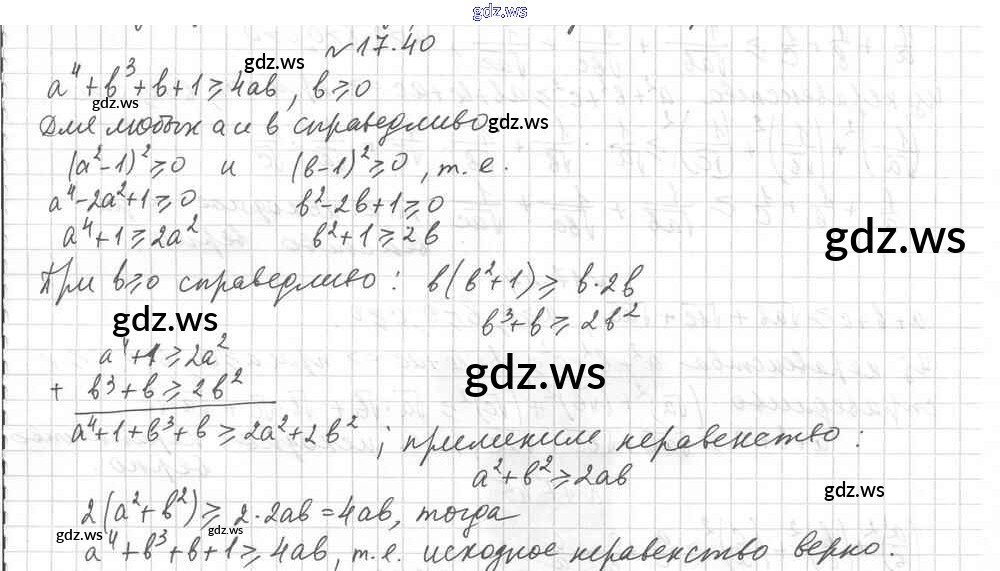 gdz.ws
№17.40
gdz.ws
a⁴+b³+b+1⩾4ab, b⩾0
gdz.ws
Для любых a и b справедливо
gdz.ws
(a²-1)²⩾0 и (b-1)²⩾0, т.е.
a⁴-2a²+1⩾0 b²-2b+1⩾0
a⁴+1⩾2a² b²+1⩾2b
gdz.ws
При b⩾0 справедливо: b(b²+1)⩾b·2b
b³+b⩾2b²
gdz.ws
a⁴+1⩾2a²
+ b³+b⩾2b²
gdz.ws
a⁴+1+b³+b⩾2a²+2b²; применим неравенство:
a²+b²⩾2ab
gdz.ws
2(a²+b²)⩾2·2ab=4ab, тогда
gdz.ws gdz.ws
a⁴+b³+b+1⩾4ab, т.е. исходное неравенство верно.